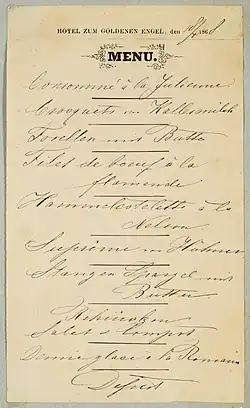 HOTEL ZUM GOLDENEN ENGEL, den 10/7 1868
MENU.
Consommé à la Julienne
Croquets von Kalbsmilch
Forellen mit Butter
Filet de boeuf à la
flamende
Hammelcoteletts à la
Nelson
Suprême von Hühner
Stangen Spargel mit
Butter
Rehrücken
Salat & Compot
Creme glace à la Romain
Dessert